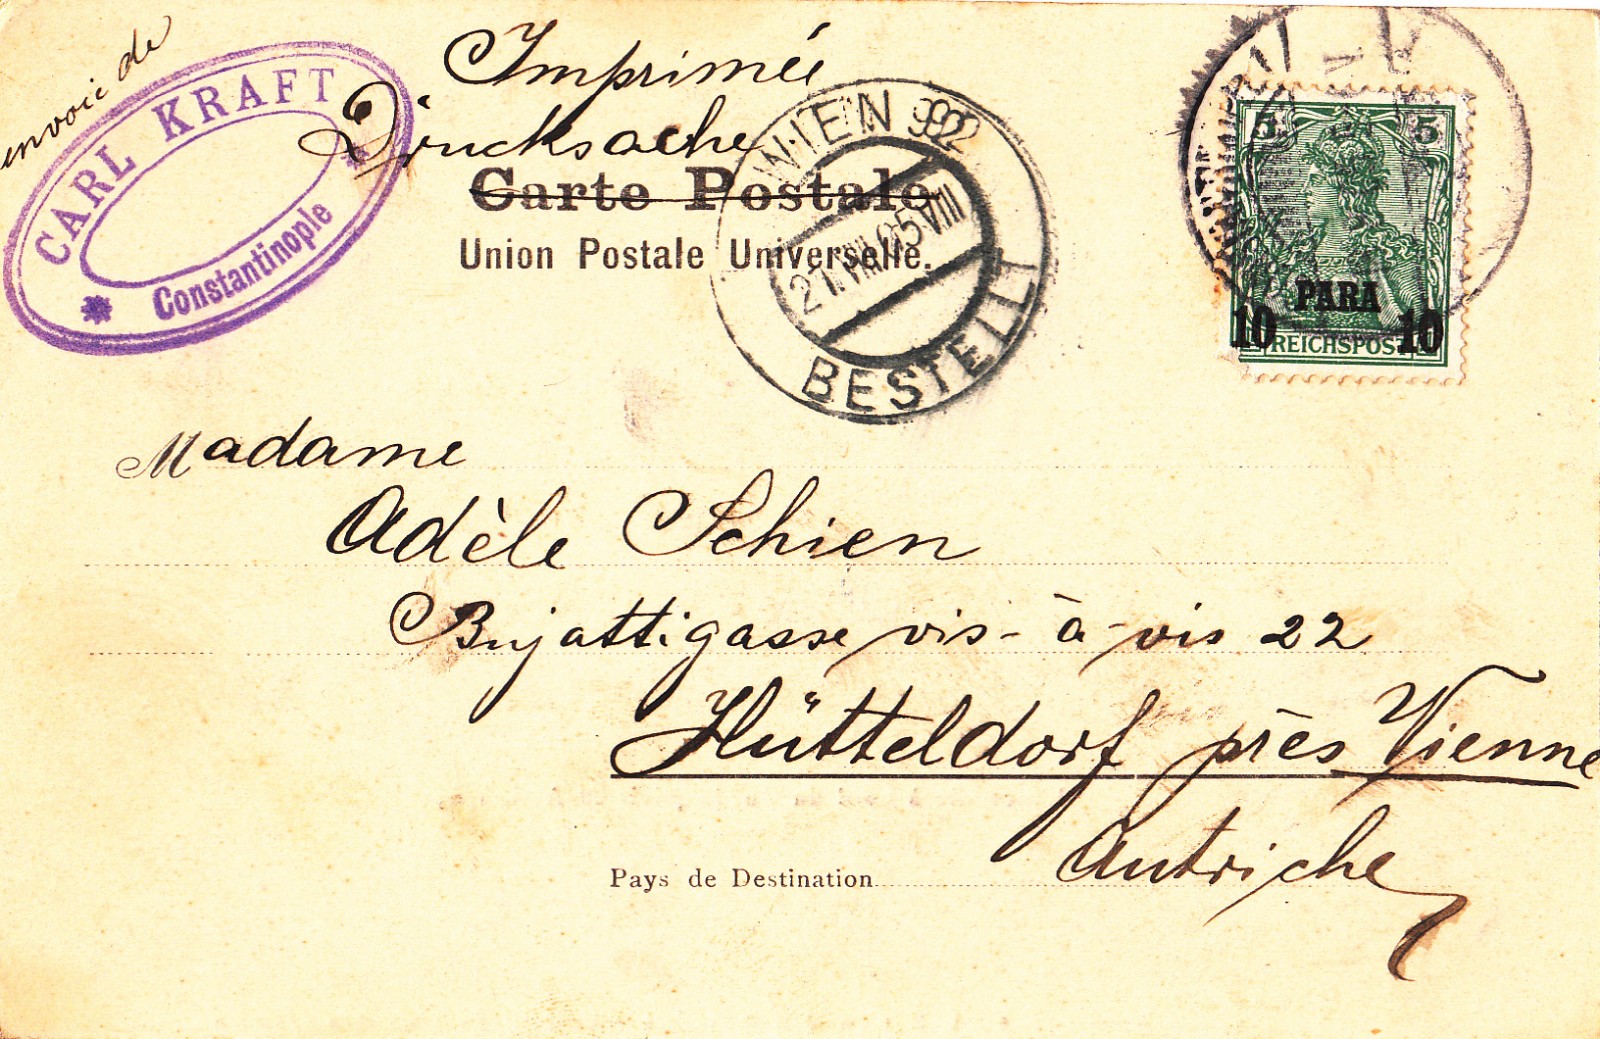 envoi de
CARL KRAFT
Constantinople
Imprimée
Drucksache
Carte Postale
Union Postale Universelle.
WIEN
21.VIII.05.VIII
BESTELLT
5 5
PARA
10 10
REICHSPOST
Madame
Adèle Schien
Bujattigasse vis-à-vis 22
Hütteldorf près Vienne
Pays de Destination Autriche